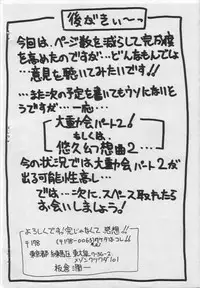 後がきぃ~っ
今回は、ページ数を減らして完成度
を高めたのですが…どんなもんでしょ
…意見を聴いてみたいです!!
…また次の予定を書いてもウソになりそ
うですが…一応…
大運動会パート2!
もしくは、
悠久幻想曲2…
今の状況では大運動会パート2が
出る可能性高し…
では…次に、スペース取れたら
お会いしましょう!
よろしくです!完じゃなくて感想!!
〒178
東京都練馬区東大泉